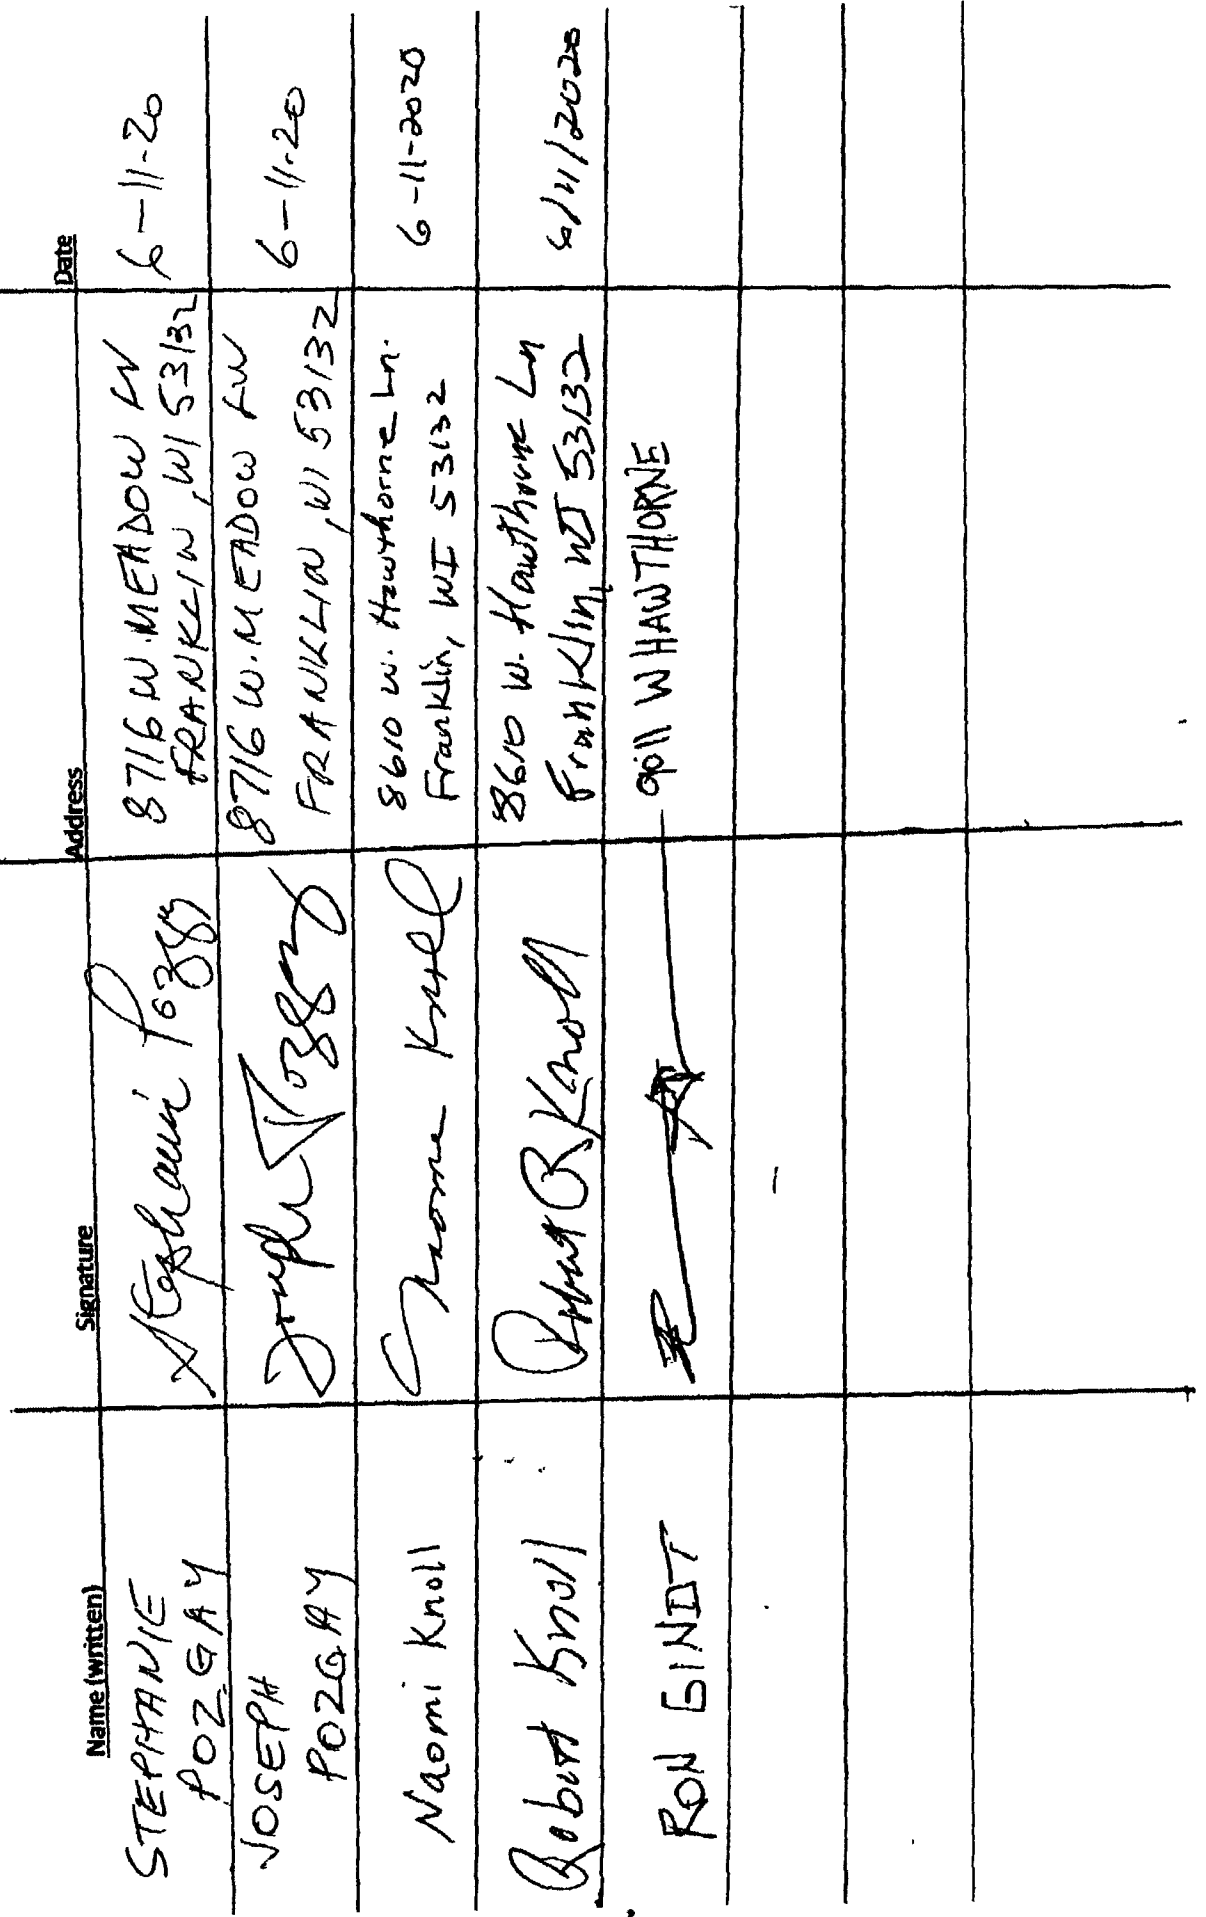 Name (written) Signature Address Date
STEPHANIE POZGAY Stephanie Pozgay 8716 W. MEADOW LN 6-11-20
FRANKLIN, WI 53132
JOSEPH POZGAY Joseph Pozgay 8716 W. MEADOW LN 6-11-20
FRANKLIN, WI 53132
Naomi Knoll Naomi Knoll 8610 W. Hawthorne Ln. 6-11-2020
Franklin, WI 53132
Robert Knoll Robert Knoll 8610 W. Hawthorne Ln 6/11/2020
Franklin, WI 53132
RON GINDT W HAWTHORNE